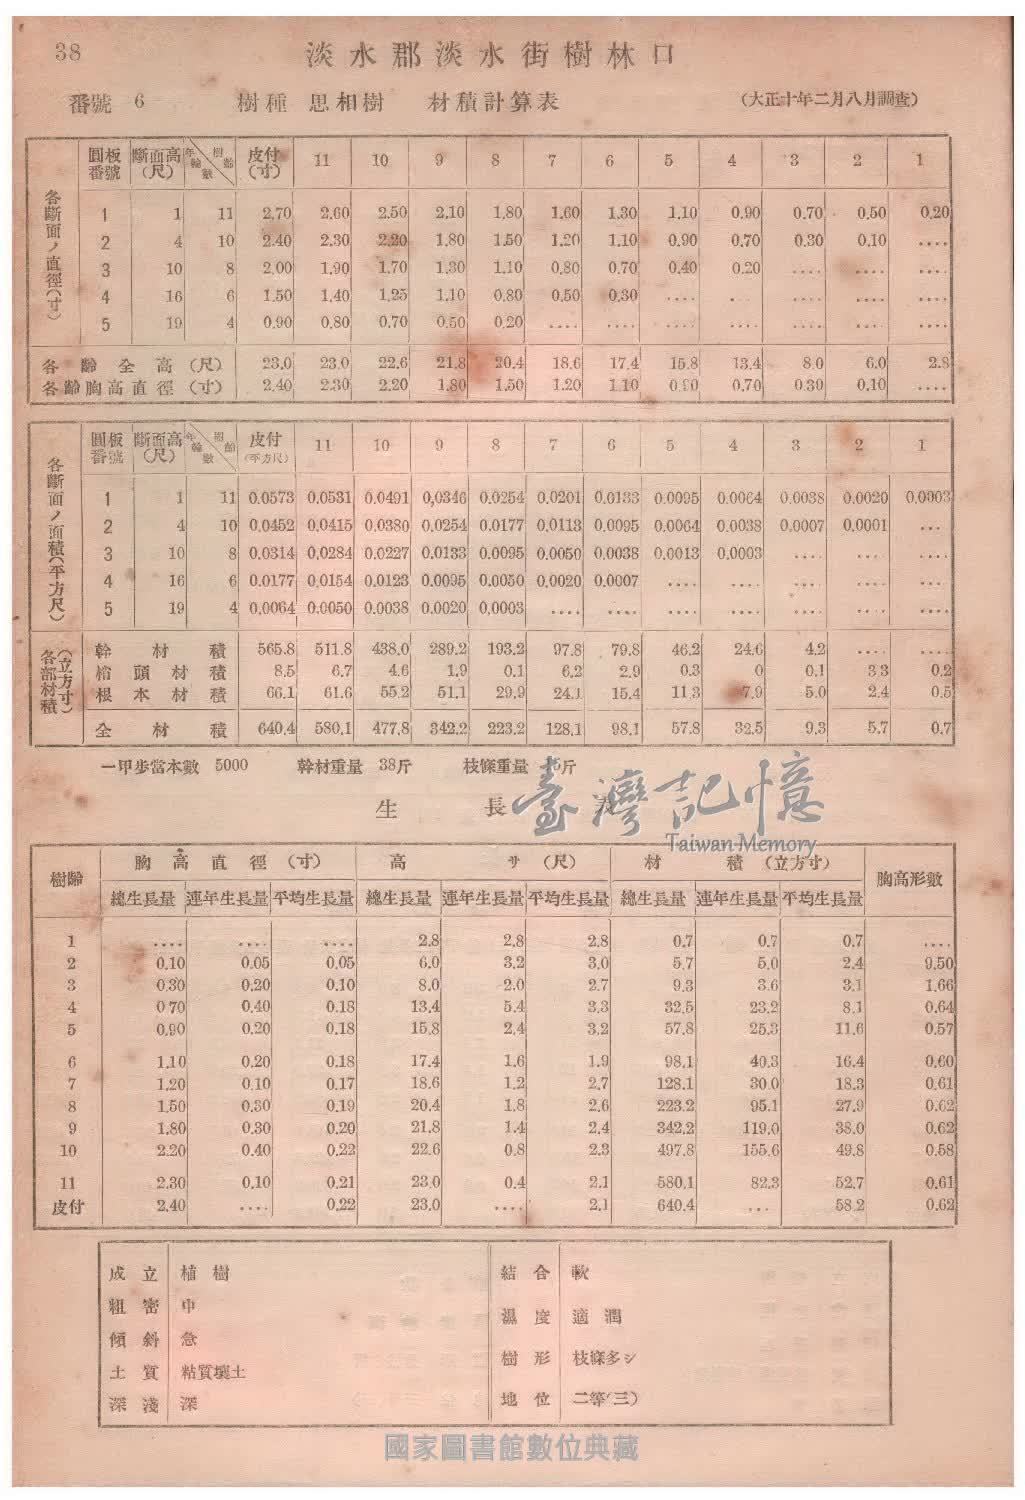 38
淡水郡淡水街樹林口
番號 6 樹種 思相樹 材積計算表 (大正十年二月八月調査)
各斷面ノ直徑(寸)
圓板番號 斷面高(尺) 年輪數 樹齡 皮付(寸) 11 10 9 8 7 6 5 4 3 2 1
1 1 11 2.70 2.60 2.50 2.10 1.80 1.60 1.30 1.10 0.90 0.70 0.50 0.20
2 4 10 2.40 2.30 2.20 1.80 1.50 1.20 1.10 0.90 0.70 0.30 0.10 ....
3 10 8 2.00 1.90 1.70 1.30 1.10 0.80 0.70 0.40 0.20 .... .... ....
4 16 6 1.50 1.40 1.25 1.10 0.80 0.50 0.30 .... . .... .... ....
5 19 4 0.90 0.80 0.70 0.50 0.20 .... .... .... .... .... .... ....
各齡全高(尺) 23.0 23.0 22.6 21.8 20.4 18.6 17.4 15.8 13.4 8.0 6.0 2.8
各齡胸高直徑(寸) 2.40 2.30 2.20 1.80 1.50 1.20 1.10 0.90 0.70 0.30 0.10 ....
各斷面ノ面積(平方尺)
圓板番號 斷面高(尺) 年輪數 樹齡 皮付(平方尺) 11 10 9 8 7 6 5 4 3 2 1
1 1 11 0.0573 0.0531 0.0491 0,0346 0.0254 0.0201 0.0133 0.0095 0.0064 0.0038 0.0020 0.0003
2 4 10 0.0452 0.0415 0.0380 0.0254 0.0177 0.0113 0.0095 0.0064 0.0038 0.0007 0.0001 ...
3 10 8 0.0314 0.0284 0.0227 0.0133 0.0095 0.0050 0.0038 0.0013 0.0003 .... .... ....
4 16 6 0.0177 0.0154 0.0123 0.0095 0.0050 0.0020 0.0007 .... .... .... .... ....
5 19 4 0.0064 0.0050 0.0038 0.0020 0.0003 .... .... .... .... .... .... ....
各部材積(立方寸)
幹材積 565.8 511.8 438.0 289.2 193.2 97.8 79.8 46.2 24.6 4.2 .... ....
梢頭材積 8.5 6.7 4.6 1.9 0.1 6.2 2.9 0.3 0 0.1 3.3 0.2
根本材積 66.1 61.6 55.2 51.1 29.9 24.1 15.4 11.3 7.9 5.0 2.4 0.5
全材積 640.4 580.1 477.8 342.2 223.2 128.1 98.1 57.8 32.5 9.3 5.7 0.7
一甲步當本數 5000 幹材重量 38斤 枝條重量 5斤
生長表
臺灣記憶
Taiwan Memory
樹齡 胸高直徑(寸) 高サ(尺) 材積(立方寸) 胸高形數
總生長量 連年生長量 平均生長量 總生長量 連年生長量 平均生長量 總生長量 連年生長量 平均生長量
1 .... .... .... 2.8 2.8 2.8 0.7 0.7 0.7 ....
2 0.10 0.05 0.05 6.0 3.2 3.0 5.7 5.0 2.4 9.50
3 0.30 0.20 0.10 8.0 2.0 2.7 9.3 3.6 3.1 1.66
4 0 70 0.40 0.18 13.4 5.4 3.3 32.5 23.2 8.1 0.64
5 0.90 0.20 0.18 15.8 2.4 3.2 57.8 25.3 11.6 0.57
6 1.10 0.20 0.18 17.4 1.6 1.9 98.1 40.3 16.4 0.60
7 1.20 0.10 0.17 18.6 1.2 2.7 128.1 30.0 18.3 0.61
8 1.50 0.30 0.19 20.4 1.8 2.6 223.2 95.1 27.9 0.62
9 1.80 0.30 0.20 21.8 1.4 2.4 342.2 119.0 38.0 0.62
10 2.20 0.40 0.22 22.6 0.8 2.3 497.8 155.6 49.8 0.58
11 2.30 0.10 0.21 23.0 0.4 2.1 580.1 82.3 52.7 0.61
皮付 2.40 .... 0.22 23.0 .... 2.1 640.4 ... 58.2 0.62
成立 植樹 結合 軟
粗密 中 濕度 適潤
傾斜 急 樹形 枝條多シ
土質 粘質壤土 地位 二等(三)
深淺 深
國家圖書館數位典藏